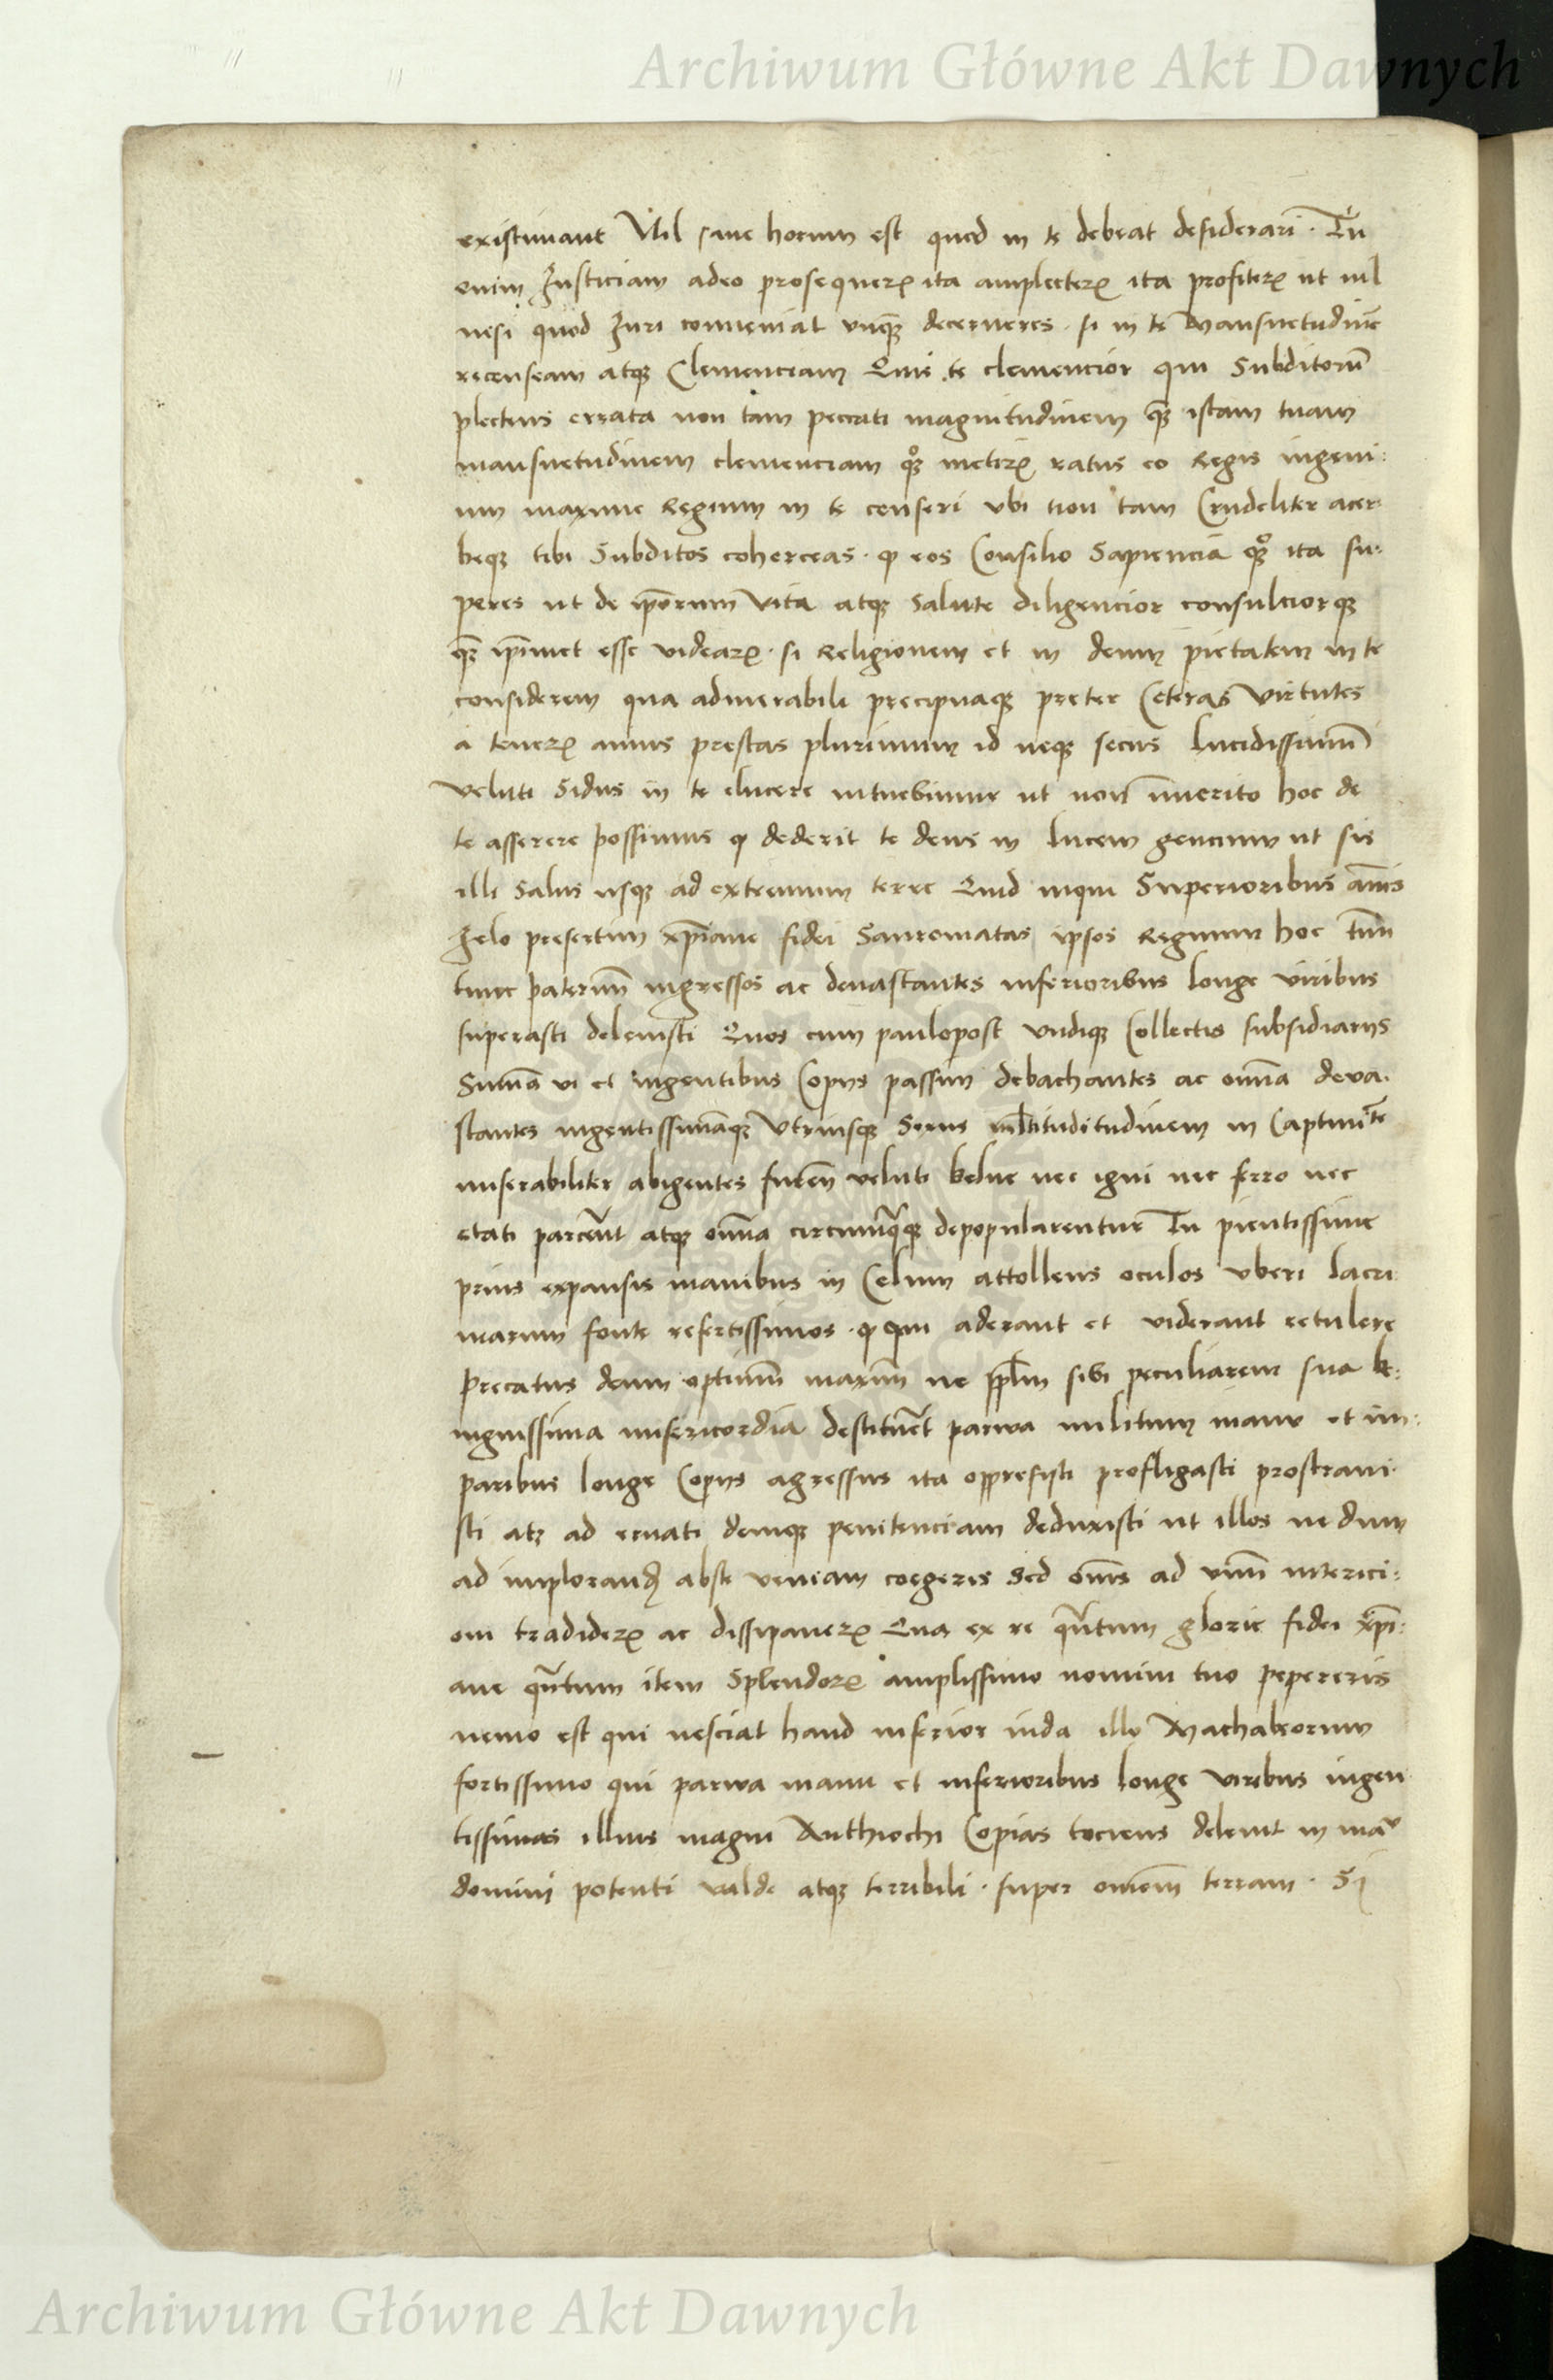 Archiwum Główne Akt Dawnych
existimant Nil sane horum est quod in te debeat desiderari. Tu
enim Justiciam adeo prosequerꝭ ita amplecterꝭ ita profiterꝭ ut nil
nisi quod Juri conveniat unqꝫ decerneres. si in te Mansuetudinē
recenseam atqꝫ Clemenciam Quis te clemencior qui Subditorū
plectens errata non tam peccati magnitudinem qꝫ istam tuam
mansuetudinem clemenciam qꝫ metirꝭ ratus eo Regis ingeni:
um maxime Regium in te censeri ubi non tam Crudeliter acer
beqꝫ tibi Subditos coherceas. ꝙ eos Consilio Sapiencia qꝫ ita su:
peres ut de ip̄orum Vita atqꝫ Salute diligencior consulciorqꝫ
qꝫ ip̄imet esse videarꝭ. si Religionem et in deum pietatem in te
considerem qua admirabili precipuaqꝫ preter Ceteras Virtutes
a tenerꝭ annis prestas plurimum id neqꝫ secus Lucidissimū
veluti Sidus in te elucere intuebimur ut non īmerito hoc de
te asserere possimus ꝙ dederit te deus in Lucem gencium ut sis
illi Salus usqꝫ ad extremum terre Quid inqui Superioribus annis
Zelo presertim xp̄iane fidei Sauromatas ipsos Regnum hoc tuū
tunc paternū ingressos ac devastantes inferioribus longe viribus
superasti delevisti Quos cum paulopost Undiqꝫ Collectis subsidiariis
Suma vi et ingentibus Copiis passim debachantes ac omnia deva.
stantes ingentissimāqꝫ Utriusqꝫ Sexus ml̄tituditudinem in Captiuite
miserabiliter abigentes furen̄ veluti belue nec igni nec ferro nec
etati parcent atqꝫ omnia circumqꝫqꝫ depopularentur Tu pientissime
prius expansis manibus in Celum attollens oculos uberi lacri
marum fonte refertissimos. ꝙ qui aderant et viderant retulere
precatus deum optimū maximū ne pplm sibi peculiarem sua be:
nignissima misericordia destituet parva militum manu et im:
paribus longe Copiis agressus ita oppressisti profligasti prostravi.
sti atꝫ ad errati deniqꝫ penitenciam deduxisti ut illos ne dum
ad implorandꝭ abste veniam coegeris Sed om̄s ad unū interici:
oni tradiderꝭ ac dissipaverꝭ Qua ex re qntum glorie fidei xp̄i:
ane qntum item Splendorꝭ amplissimo nomini tuo pepereris
nemo est qui nesciat haud inferior iuda illo Machabeorum
fortissimo qui parva manu et inferioribus longe viribus ingen
tissimas illius magni Anthiochi Copias tociens delevit in manu
domini potenti valde atqꝫ terribili. super omnem terram. Si
Archiwum Główne Akt Dawnych